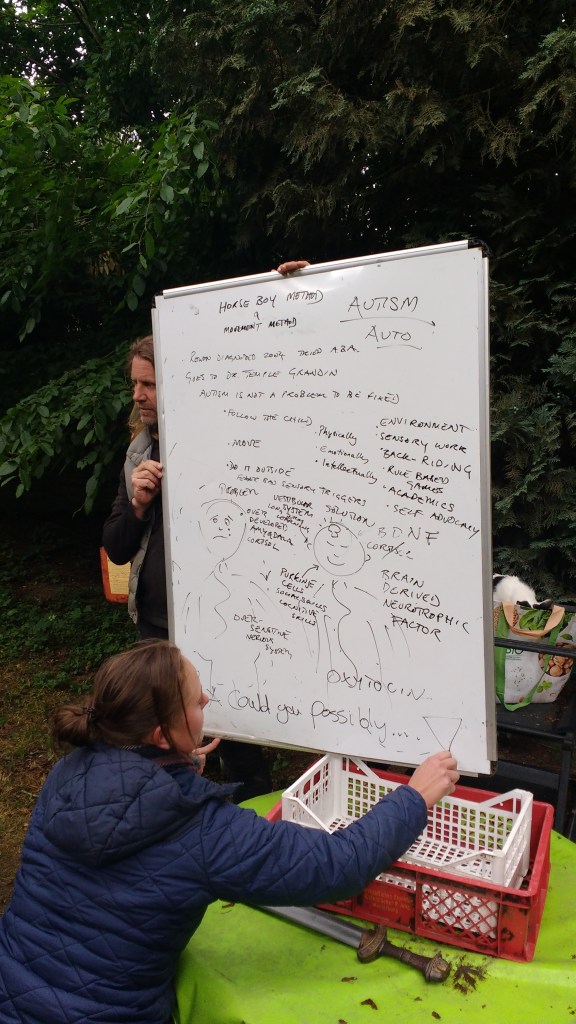 HORSE BOY METHOD
&
MOVEMENT METHOD
AUTISM
AUTO
ROWAN DIAGNOSED 2004 TRIED ABA
GOES TO DR. TEMPLE GRANDIN
AUTISM IS NOT A PROBLEM TO BE FIXED
• FOLLOW THE CHILD
• MOVE
• DO IT OUTSIDE
FEWER BAD SENSORY TRIGGERS
• Physically
• Emotionally
• Intellectually
• ENVIRONMENT
• SENSORY WORK
• BACK-RIDING
• RULE BASED
GAMES
• ACADEMICS
• SELF ADVOCACY
PROBLEM
OVER
DEVELOPED
AMYGDALA
CORTISOL
VESTIBULAR
SYSTEM
SOLUTION
BDNF
BRAIN
DERIVED
NEUROTROPHIC
FACTOR
PURKINJE
CELLS
SOCIAL SKILLS
COGNITIVE
SKILLS
OVER-
SENSITIVE
NERVOUS
SYSTEM
OXYTOCIN
Could you possibly....